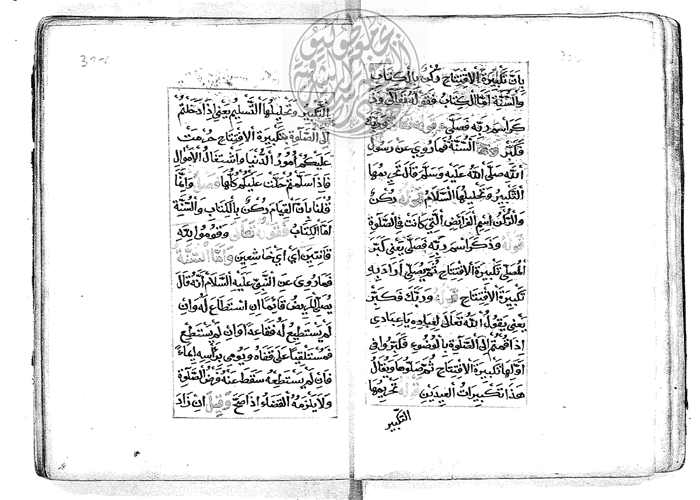 بان تكبيرة الافتتاح ركن بالكتاب
والسنة اما الكتاب فقوله تعالى وذ
كر اسم ربه فصلى قوله تعالى وربك
فكبر واما السنة فماروي عن رسول
الله صلى الله عليه وسلم قال تحريمها
التكبير وتحليلها السلام قوله ركن
والركن اسم الفرائض التي كانت في الصلوة
قوله وذكر اسم ربه فصلى يعني كبر
المصلي تكبيرة الافتتاح ثم يصلي اراد به
تكبيرة الافتتاح قوله وربك فكبر
يعني يقول الله تعالى لعباده يا عبادي
اذا قمتم الى الصلوة بالوضوء فكبروا في
اولها تكبيرة الافتتاح ثم صلوها ويقال
هذا تكبيرات العيدين قوله تحريمها
التكبير
التكبير وتحليلها التسليم يعني اذا دخلتم
الى الصلوة بتكبيرة الافتتاح حرمت
عليكم امور الدنيا واشتغال الاموال
فاذا سلمتم حلت عليكم كلها فصل وانما
قلنا بان القيام ركن بالكتاب والسنة
اما الكتاب فقوله تعالى وقوموا لله
قانتين اي خاشعين واما السنة
فماروي عن النبي عليه السلام انه قال
يصلي المريض قائما ان استطاع له وان
لم يستطيع له فقاعدا وان لم يستطع
فمستلقيا على قفاه ويومي براسه ايماء
فان لم يستطعه سقط عنه فرض الصلوة
ولا يلزمه القضاء اذا صح وقيل ان زاد